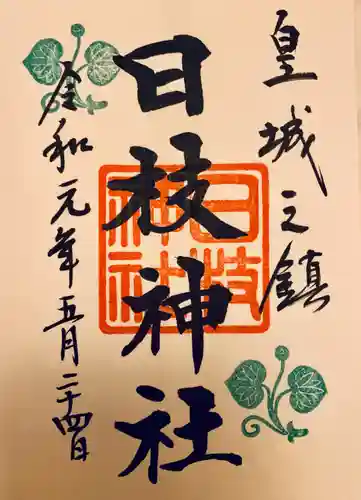 皇城之鎮
日枝神社
日枝神社
令和元年五月二十四日